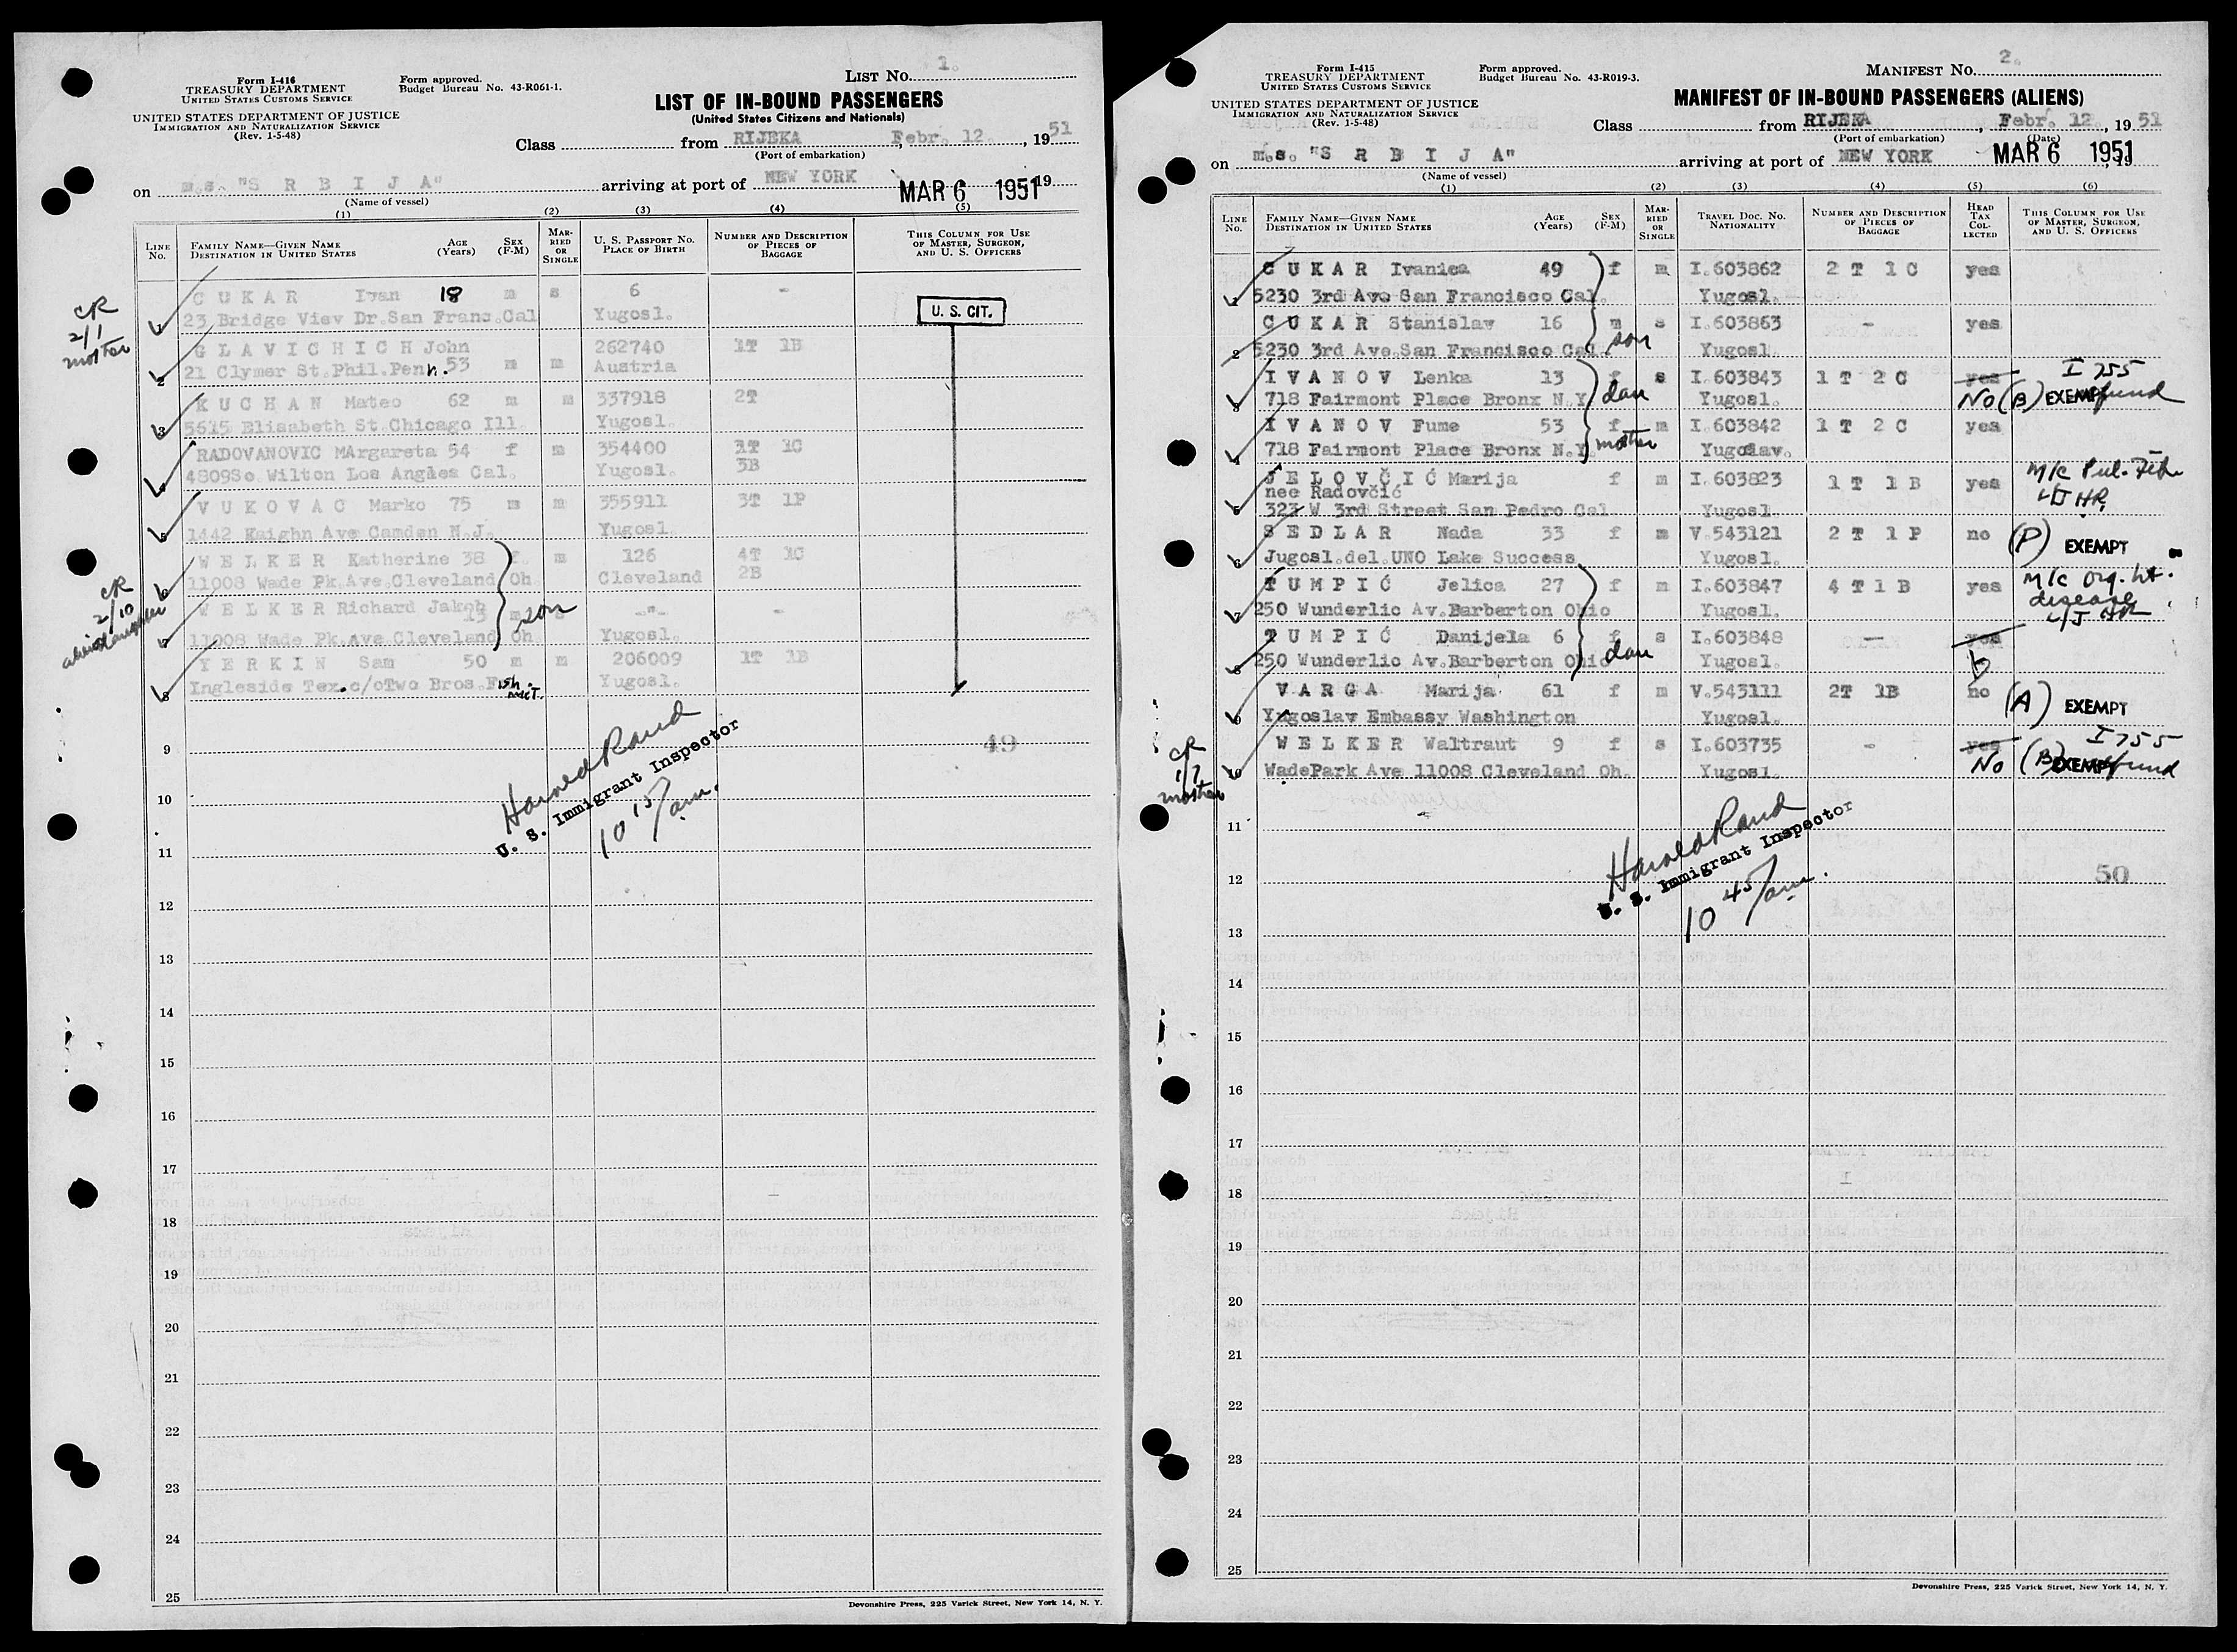 Form I-416
TREASURY DEPARTMENT
UNITED STATES CUSTOMS SERVICE
UNITED STATES DEPARTMENT OF JUSTICE
IMMIGRATION AND NATURALIZATION SERVICE
(Rev. 1-5-48)
Form approved.
Budget Bureau No. 43-R061-1.
LIST NO. 1.
LIST OF IN-BOUND PASSENGERS
(United States Citizens and Nationals)
Class from RIJEKA, Febr. 12., 1951
(Port of embarkation)
on m.s. "S R B I J A" arriving at port of NEW YORK MAR 6 1951 19
(Name of vessel)
(1) (2) (3) (4) (5)
LINE No. FAMILY NAME—GIVEN NAME DESTINATION IN UNITED STATES AGE (Years) SEX (F-M) MARRIED OR SINGLE U. S. PASSPORT NO. PLACE OF BIRTH NUMBER AND DESCRIPTION OF PIECES OF BAGGAGE THIS COLUMN FOR USE OF MASTER, SURGEON, AND U. S. OFFICERS
CR 2/1 mother
1 C U K A R Ivan 18 m s 6 -
23 Bridge Viev Dr.San Franc.Cal Yugosl. U. S. CIT.
2 G L A V I C H I C H John 262740 1T 1B
21 Clymer St.Phil.Penn. 53 m m Austria
3 K U C H A N Mateo 62 m m 337918 2T
5615 Elisabeth St.Chicago Ill. Yugosl.
4 RADOVANOVIC MArgareta 54 f m 354400 1T 1C
4809So Wilton Los Angles Cal. Yugosl. 3B
5 V U K O V A C Marko 75 m m 355911 3T 1P
1442 Kaighn Ave Camden N.J. Yugosl.
6 W E L K E R Katherine 38 f. m 126 4T 1C
11008 Wade Pk.Ave.Cleveland Oh. Cleveland 2B
CR 2/10 alien daughter
7 W E L K E R Richard Jakob 13 m s son -"- -
11008 Wade Pk.Ave Cleveland Oh. Yugosl.
8 Y E R K I N Sam 50 m m 206009 1T 1B
Ingleside Tex.c/oTwo Bros.Fish. Yugosl.
Harold Rand
U. S. Immigrant Inspector
10 15/am.
49
9
10
11
12
13
14
15
16
17
18
19
20
21
22
23
24
25
Devonshire Press, 225 Varick Street, New York 14, N. Y.
Form I-415
TREASURY DEPARTMENT
UNITED STATES CUSTOMS SERVICE
UNITED STATES DEPARTMENT OF JUSTICE
IMMIGRATION AND NATURALIZATION SERVICE
(Rev. 1-5-48)
Form approved.
Budget Bureau No. 43-R019-3.
MANIFEST NO. 2.
MANIFEST OF IN-BOUND PASSENGERS (ALIENS)
Class from RIJEKA, Febr. 12., 1951
(Port of embarkation) (Date)
on m.s. "S R B I J A" arriving at port of NEW YORK MAR 6 1951
(Name of vessel)
(1) (2) (3) (4) (5) (6)
LINE No. FAMILY NAME—GIVEN NAME DESTINATION IN UNITED STATES AGE (Years) SEX (F-M) MARRIED OR SINGLE TRAVEL DOC. NO. NATIONALITY NUMBER AND DESCRIPTION OF PIECES OF BAGGAGE HEAD TAX COLLECTED THIS COLUMN FOR USE OF MASTER, SURGEON, AND U. S. OFFICERS
1 C U K A R Ivanica 49 f m I.603862 2 T 1 C yes
5230 3rd Ave San Francisco Cal. Yugosl.
2 C U K A R Stanislav 16 m s I.603863 - yes
5230 3rd Ave.San Francisco Cal. son Yugosl.
3 I V A N O V Lenka 13 f s I.603843 1 T 2 C yes I 755
718 Fairmont Place Bronx N.Y. dau Yugosl. No (B) EXEMPT fund
4 I V A N O V Fume 53 f m I.603842 1 T 2 C yes
718 Fairmont Place Bronx N.Y. mother Yugoslav.
5 J E L O V Č I Ć Marija f m I.603823 1 T 1 B yes M/c Pul.
nee Radovčić
323 W 3rd Street San Pedro Cal Yugosl
6 S E D L A R Nada 33 f m V.543121 2 T 1 P no (P) EXEMPT
Jugosl.del.UNO Lake Success. Yugosl.
7 T U M P I Ć Jelica 27 f m I.603847 4 T 1 B yes M/c Org. ht. disease
250 Wunderlic Av.Barberton Ohio Yugosl.
8 T U M P I Ć Danijela 6 f s I.603848 - yes
250 Wunderlic Av.Barberton Ohio dau Yugosl.
9 V A R G A Marija 61 f m V.543111 2T 1B no (A) EXEMPT
Yugoslav Embassy Washington Yugosl.
CR 1/7 mother
10 W E L K E R Waltraut 9 f s I.603735 - yes I 755
WadePark Ave 11008 Cleveland Oh. Yugosl. No (B) EXEMPT fund
Harold Rand
U. S. Immigrant Inspector
10 45/am.
50
11
12
13
14
15
16
17
18
19
20
21
22
23
24
25
Devonshire Press, 225 Varick Street, New York 14, N. Y.